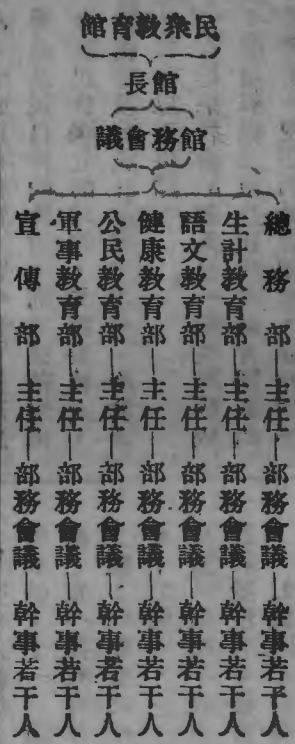 民衆教育館
館長
館務會議
總務部—主任—部務會議—幹事若干人
生計教育部—主任—部務會議—幹事若干人
語文教育部—主任—部務會議—幹事若干人
健康教育部—主任—部務會議—幹事若干人
公民教育部—主任—部務會議—幹事若干人
軍事教育部—主任—部務會議—幹事若干人
宣傳部—主任—部務會議—幹事若干人